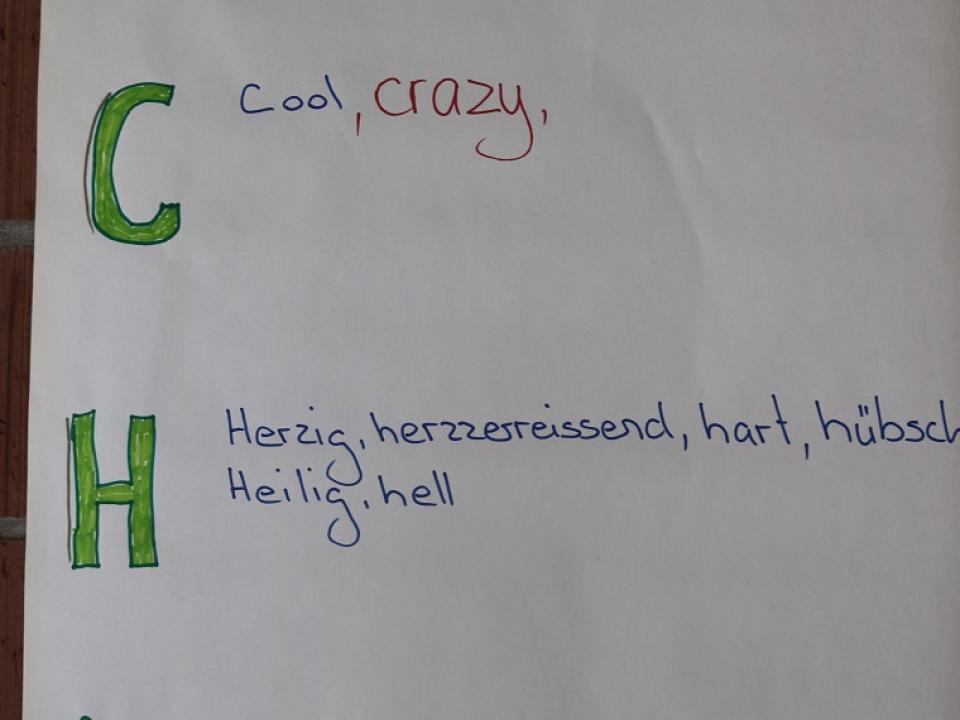 C Cool, crazy,
H Herzig, herzzerreissend, hart, hübsch
Heilig, hell